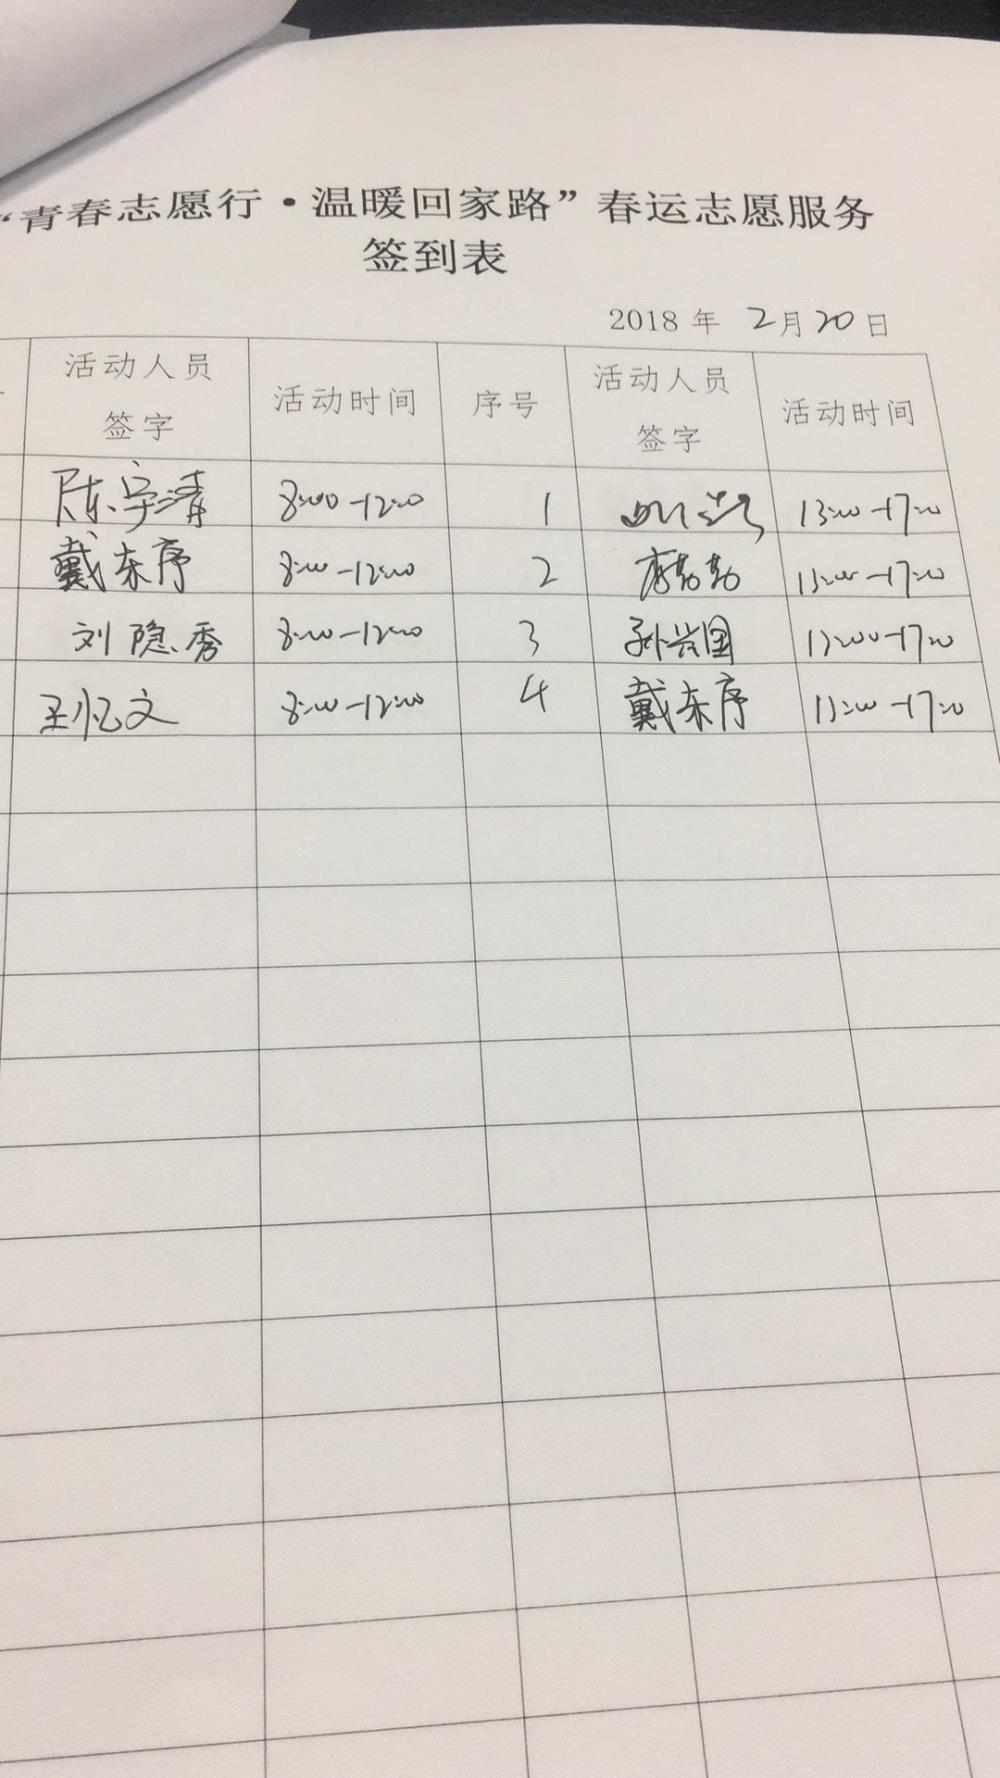 “青春志愿行·温暖回家路”春运志愿服务
签到表
2018 年 2月20日
活动人员签字 活动时间 序号 活动人员签字 活动时间
陈宇清 8:00-12:00 1 13:00-17:00
戴东序 8:00-12:00 2 13:00-17:00
刘隐秀 8:00-12:00 3 孙兴国 13:00-17:00
王忆文 8:00-12:00 4 戴东序 13:00-17:00